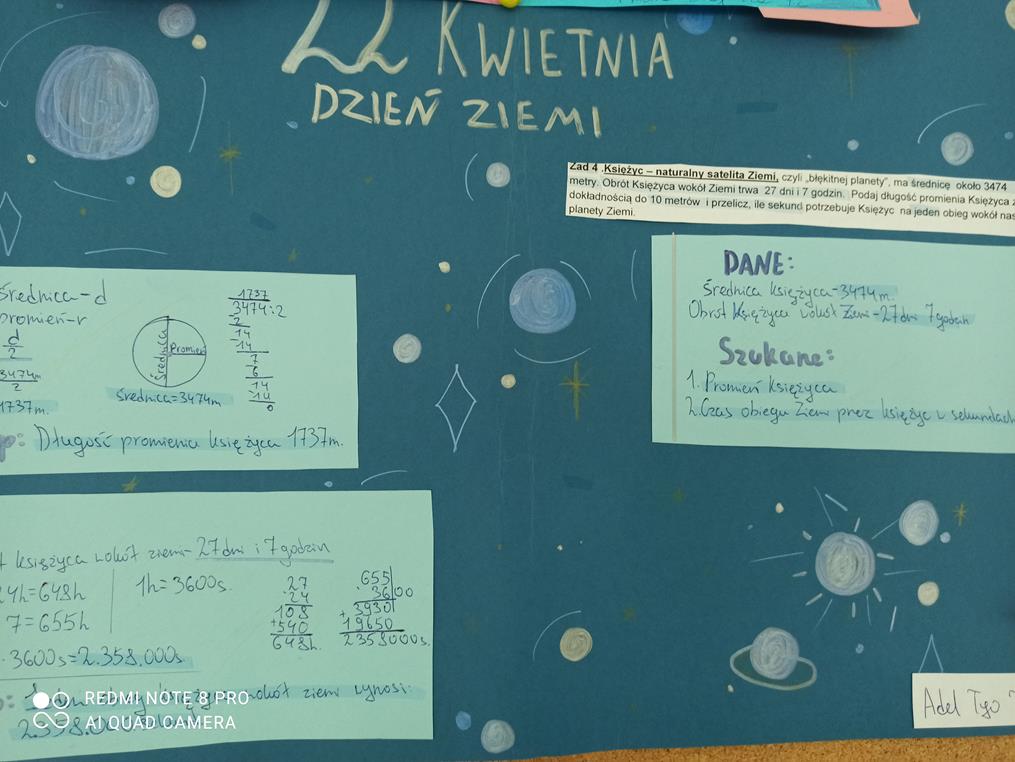 22 KWIETNIA
DZIEŃ ZIEMI
Zad 4 .Księżyc – naturalny satelita Ziemi, czyli „błękitnej planety”, ma średnicę około 3474
metry. Obrót Księżyca wokół Ziemi trwa 27 dni i 7 godzin. Podaj długość promienia Księżyca z
dokładnością do 10 metrów i przelicz, ile sekund potrzebuje Księżyc na jeden obieg wokół nas
planety Ziemi.
DANE:
Średnica księżyca-3474m.
Obrót Księżyca wokół Ziemi-27dni 7godzin
Szukane:
1. Promień Księżyca
2.Czas obiegu Ziemi przez księżyc w sekundach
Średnica-d
promień-r
d
2
3474m
2
1737m.
Średnica
Promień
średnica=3474m
1737
3474:2
2
14
-14
7
-6
14
-14
0
: Długość promienia księżyca 1737m.
księżyca wokół ziemi-27dni i 7godzin
24h=648h
7=655h
1h=3600s.
· 3600s=2.358.000s
27
24
108
+540
648h.
655
3600
3930
+19650
2358000s.
księżyca wokół ziemi wynosi:
2.358.0
REDMI NOTE 8 PRO
AI QUAD CAMERA
Adel Tyo